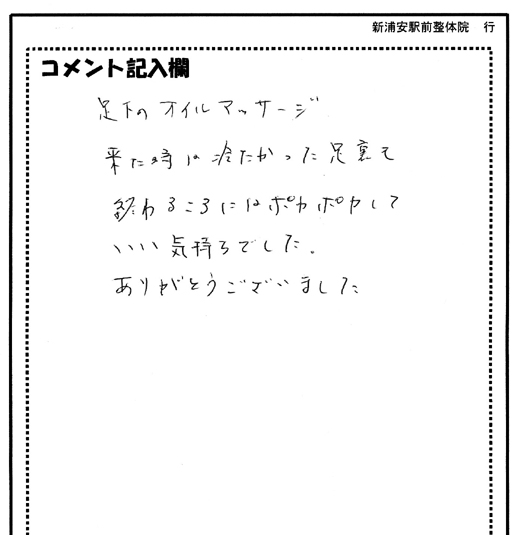 新浦安駅前整体院 行
コメント記入欄
足下のオイルマッサージ
来た時は冷たかった足裏も
終わるころにはポカポカして
いい気持ちでした。
ありがとうございました